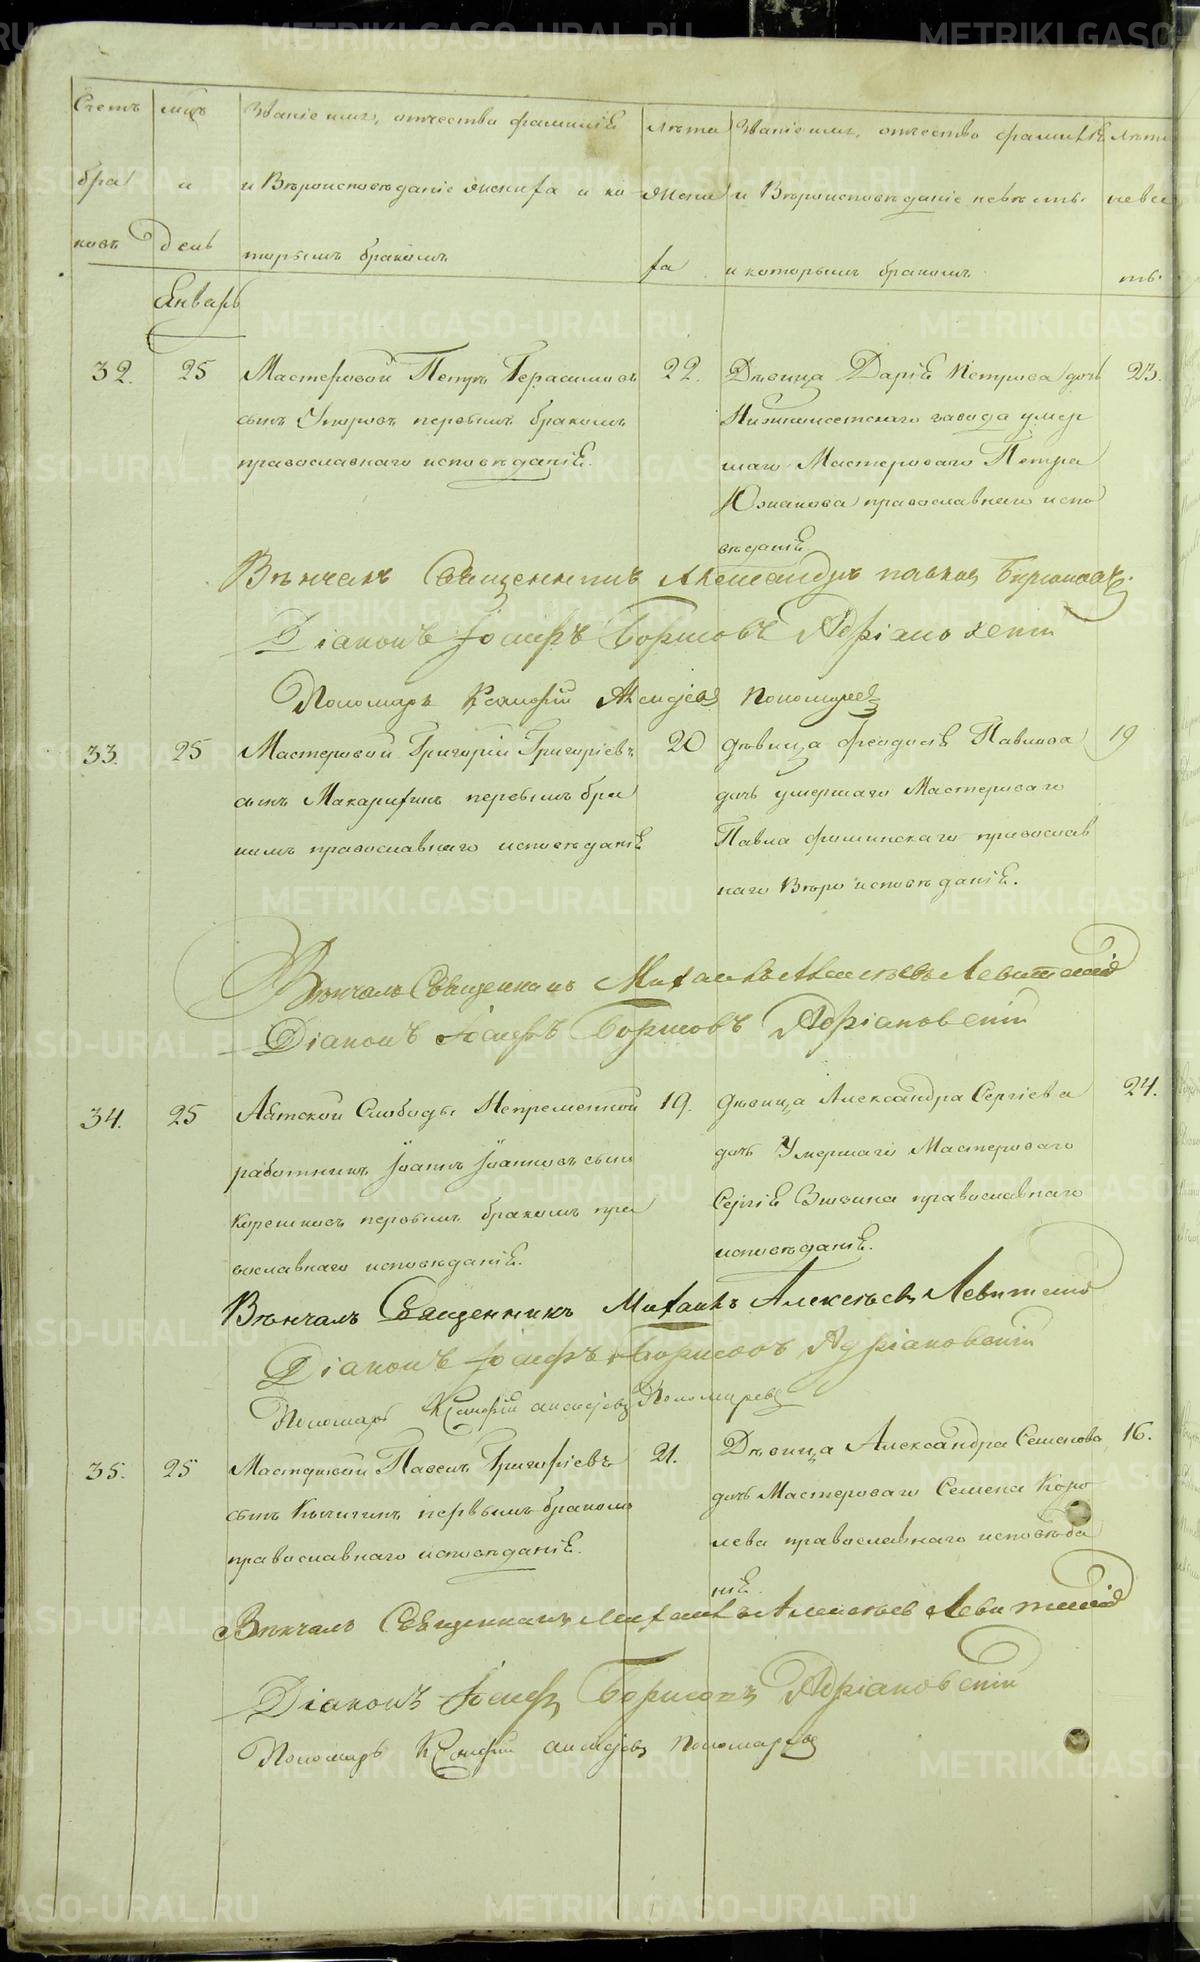 Счетъ бра ковъ
мцъ и день
Званіе имя, отчество фамилія
и Вѣроисповѣданіе жениха и ко
торымъ бракомъ
лѣта жени ха
Званіе имя, отчество фамилія
и Вѣроисповѣданіе невѣсты
и которымъ бракомъ
лѣта невѣс ты
Январь
32. 25 Мастеровой Петръ Герасимовъ 22.
сынъ первымъ бракомъ
православнаго исповѣданія.
Дѣвица Дарія Петрова дочь 23.
Нижнеисетскаго завода умер
шаго Мастероваго Петра
Южакова православнаго испо
вѣданія
Вѣнчалъ Священникъ Александръ
Діаконъ Іосифъ Борисовъ Адріановскій
Пономарь Ксенофій Пономаревъ
33. 25 Мастеровой Григорій Григоріевъ 20
сынъ Макарихинъ первымъ бра
комъ православнаго исповѣданія
дѣвица Феодосія Павлова 19
дочь умершаго Мастероваго
Павла Фоминскаго православ
наго Вѣроисповѣданія.
Вѣнчалъ Священникъ Михаилъ Алексѣевъ Левитскій
Діаконъ Іосифъ Борисовъ Адріановскій
34. 25 Аятской Слободы Непременной 19.
работникъ Іоаннъ Іоанновъ сынъ
первымъ бракомъ пра
вославнаго исповѣданія.
дѣвица Александра Сергіева 24.
дочь Умершаго Мастероваго
Сергія православнаго
исповѣданія.
Вѣнчалъ Священникъ Михаилъ Алексѣевъ Левитскій
Діаконъ Іосифъ Борисовъ Адріановскій
Пономарь Ксенофій Пономаревъ
35. 25 Мастеровой Павелъ Григоріевъ 21.
сынъ первымъ бракомъ
православнаго исповѣданія.
Дѣвица Александра Семенова 16.
дочь Мастероваго Семена Коро
лева православнаго исповѣда
нія.
Вѣнчалъ Священникъ Михаилъ Алексѣевъ Левитскій
Діаконъ Іосифъ Борисовъ Адріановскій
Пономарь Ксенофій Пономаревъ
METRIKI.GASO-URAL.RU